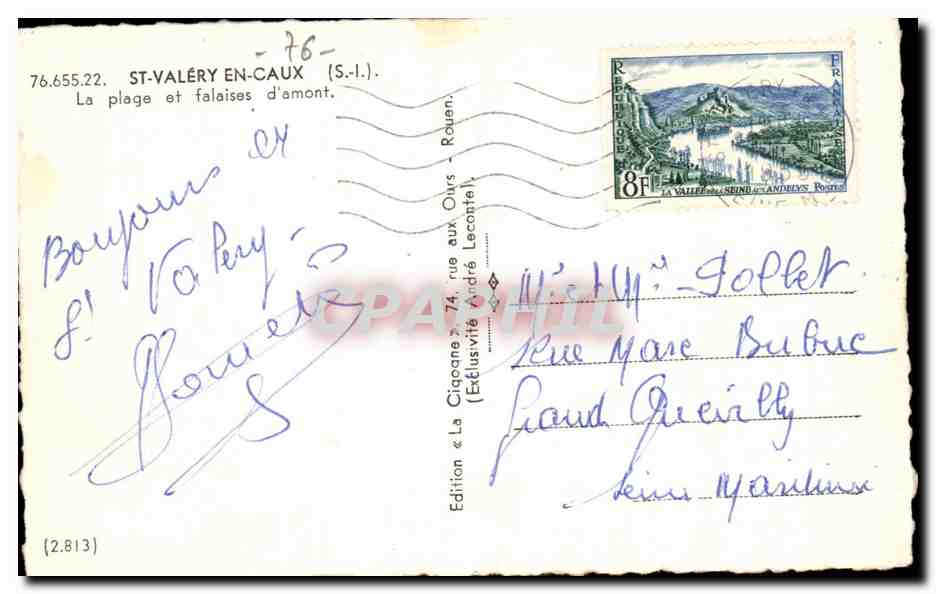 - 76 -
76.655.22. ST-VALÉRY EN-CAUX (S.-I.).
La plage et falaises d'amont.
REPUBLIQUE FRANÇAISE
8F LA VALLÉE DE LA SEINE AUX ANDELYS POSTES
Bonjour de
St Valery -
Edition « La Cigogne », 74, rue aux Ours - Rouen.
(Exclusivité André Lecontel)
CPAPHIL
Mr et Mme
rue Marc
Grand Quevilly
Seine Maritime
(2.813)